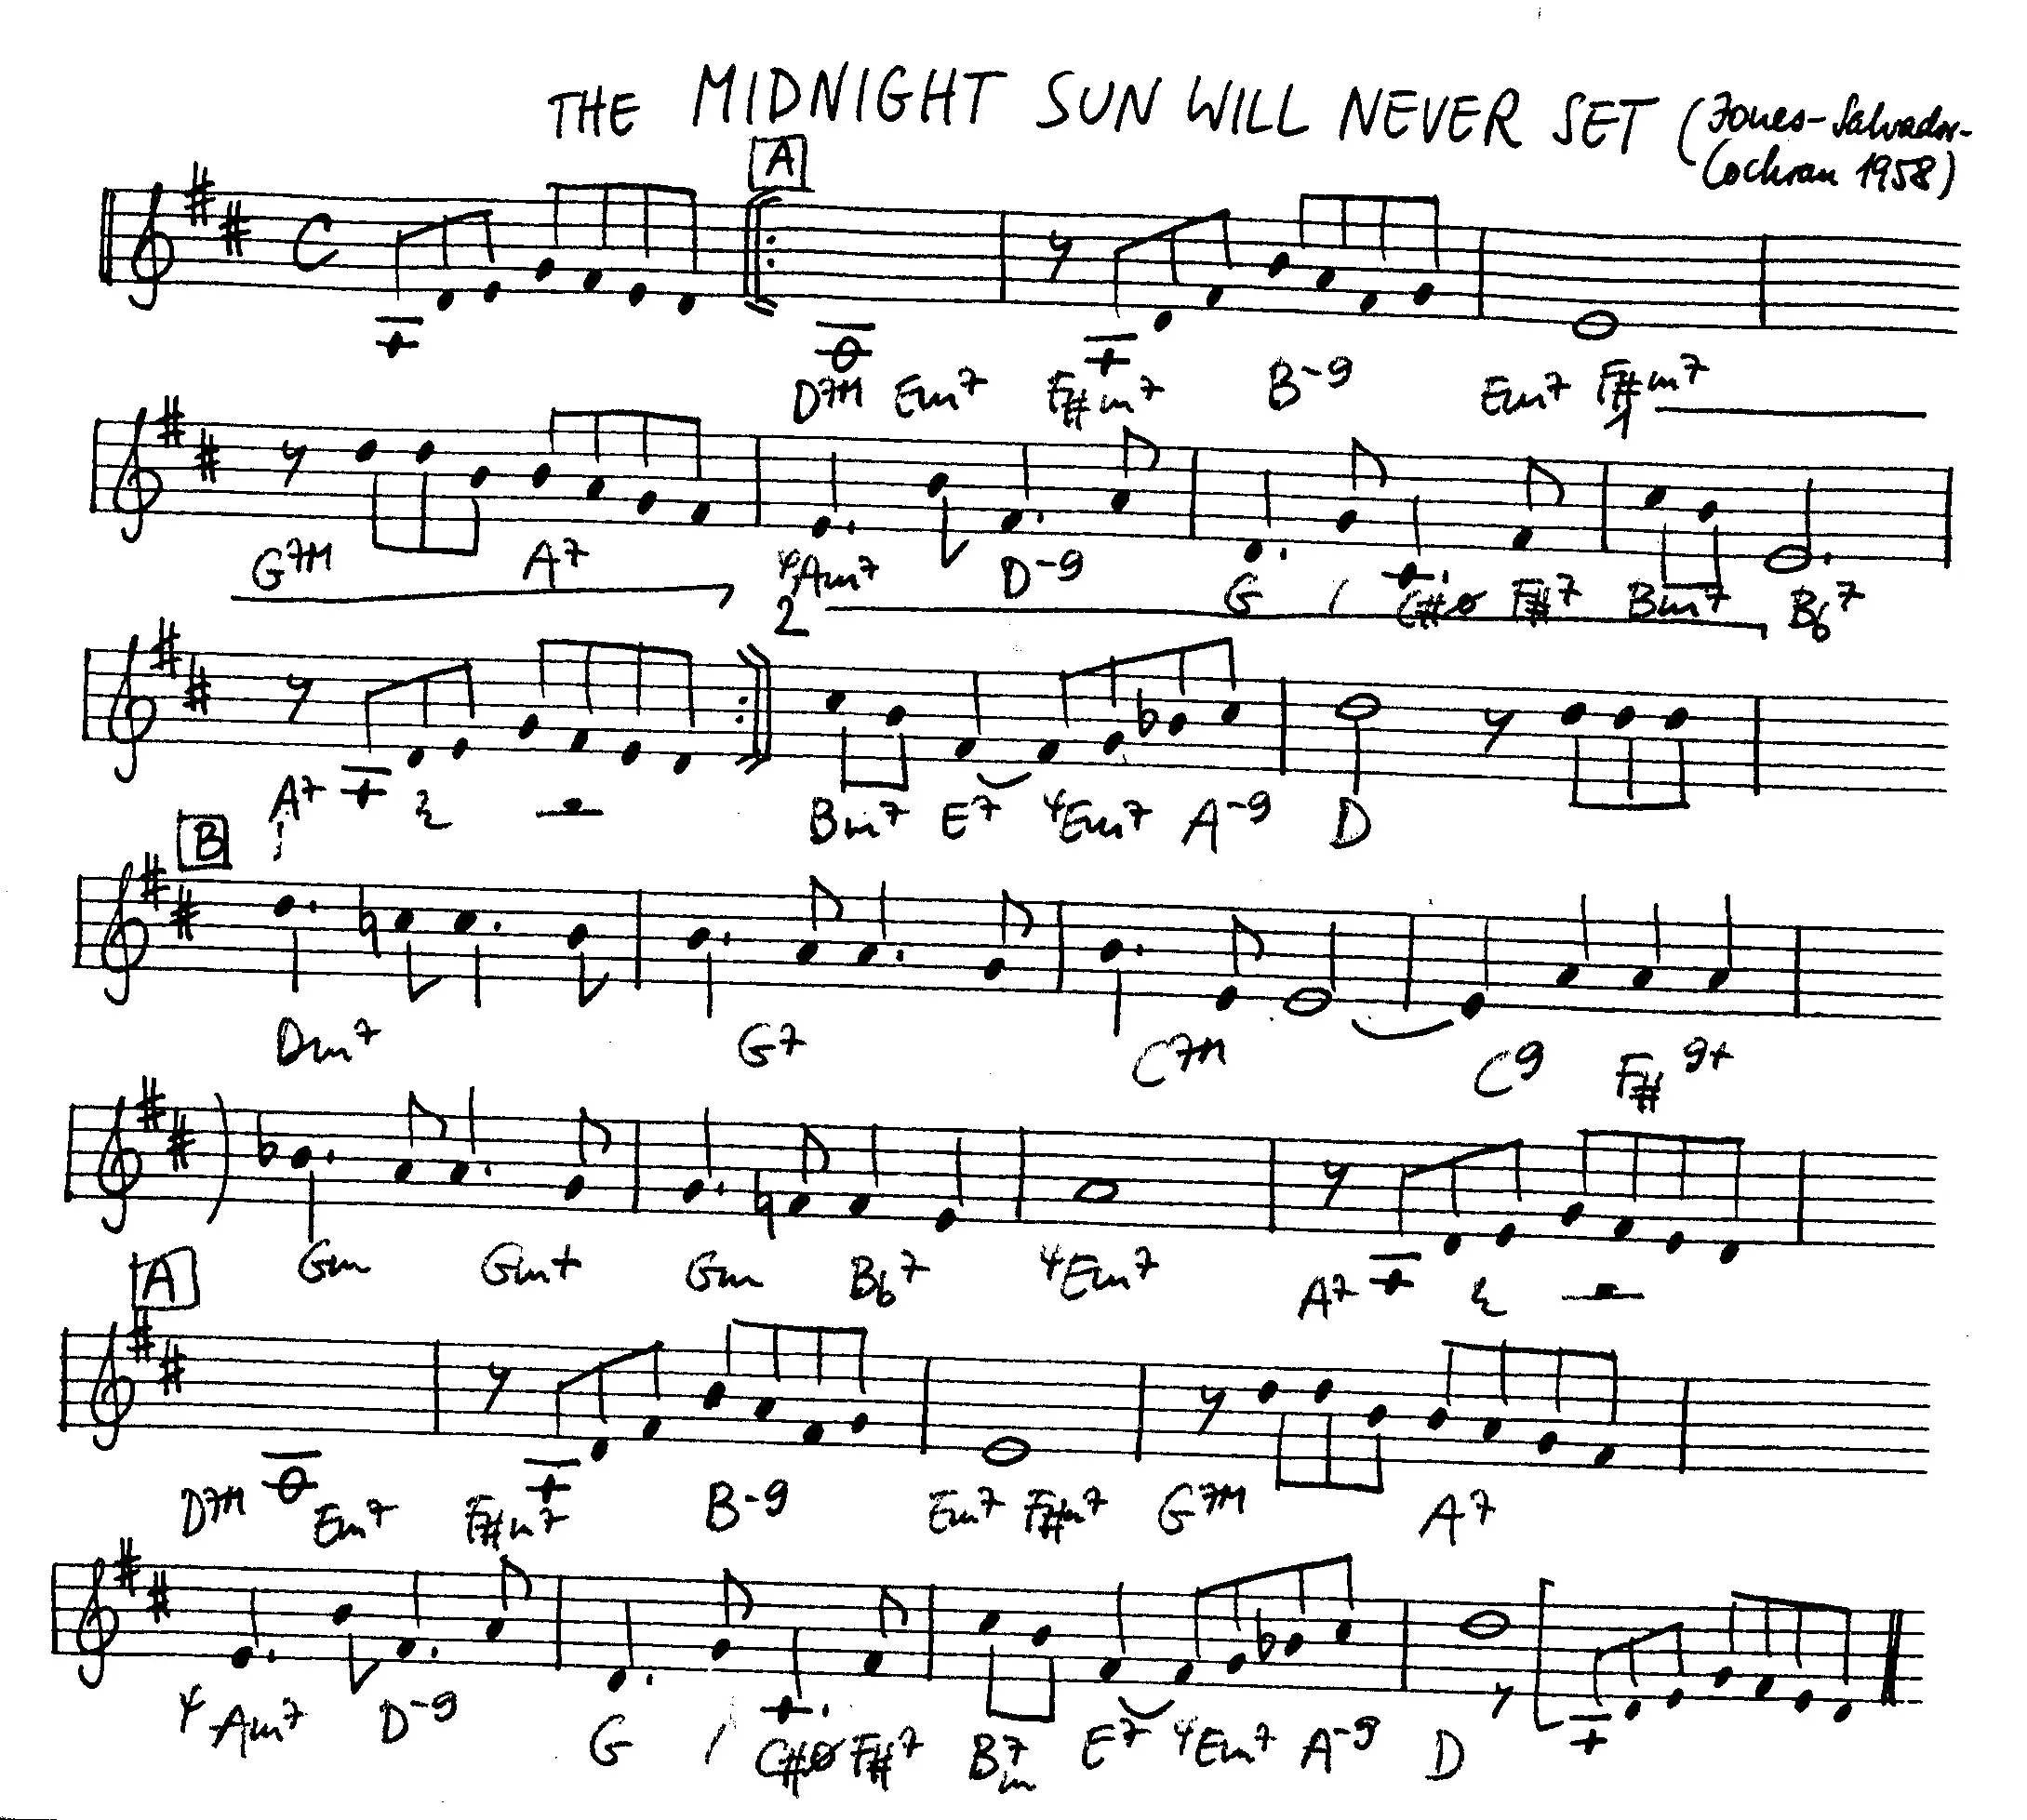 THE MIDNIGHT SUN WILL NEVER SET (Jones-Salvador-
Cochran 1958)
A
C
D7M Em7 F#m7 B-9 Em7 F#m7
1
G7M A7 4Am7 D-9 G / C#ø F#7 Bm7 Bb7
2
A7 Bm7 E7 4Em7 A-9 D
B
Dm7 G7 C7M C9 F#9+
Gm Gm+ Gm Bb7 4Em7 A7
A
D7M Em7 F#m7 B-9 Em7 F#m7 G7M A7
4Am7 D-9 G / C#ø F#7 Bm7 E7 4Em7 A-9 D